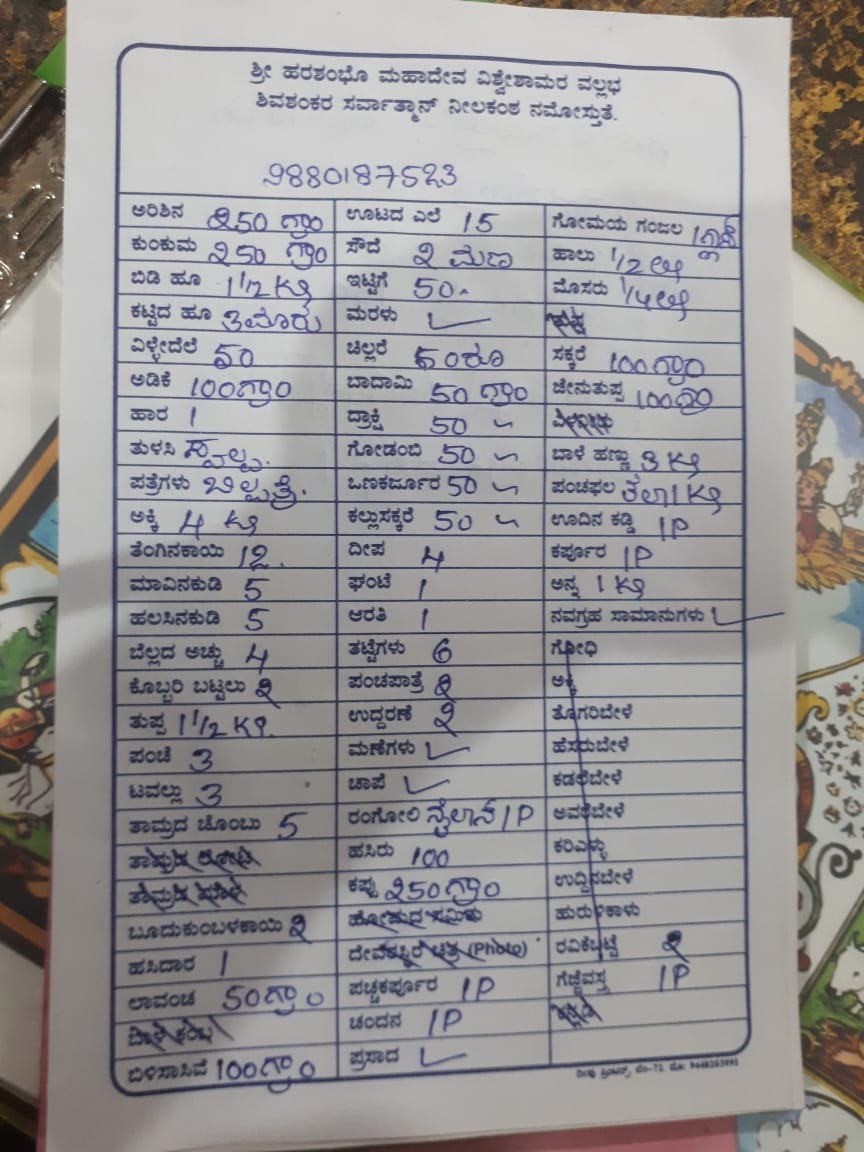 ಶ್ರೀ ಹರಶಂಭೊ ಮಹಾದೇವ ವಿಶ್ವೇಶಾಮರ ವಲ್ಲಭ
ಶಿವಶಂಕರ ಸರ್ವಾತ್ಮಾನ್ ನೀಲಕಂಠ ನಮೋಸ್ತುತೆ.
9880187523
ಅರಿಶಿನ 250 ಗ್ರಾಂ
ಕುಂಕುಮ 250 ಗ್ರಾಂ
ಬಿಡಿ ಹೂ 1 1/2 ಕೆಜಿ
ಕಟ್ಟಿದ ಹೂ 3 ಮಾರು
ವಿಳ್ಳೇದೆಲೆ 50
ಅಡಿಕೆ 100 ಗ್ರಾಂ
ಹಾರ 1
ತುಳಸಿ ಸ್ವಲ್ಪ.
ಪತ್ರೆಗಳು ಬಿಲ್ಪತ್ರೆ.
ಅಕ್ಕಿ 4 ಕೆಜಿ
ತೆಂಗಿನಕಾಯಿ 12.
ಮಾವಿನಕುಡಿ 5
ಹಲಸಿನಕುಡಿ 5
ಬೆಲ್ಲದ ಅಚ್ಚು 4
ಕೊಬ್ಬರಿ ಬಟ್ಟಲು 2
ತುಪ್ಪ 1 1/2 ಕೆಜಿ.
ಪಂಚೆ 3
ಟವಲ್ಲು 3
ತಾಮ್ರದ ಚೊಂಬು 5
ತಾಮ್ರದ ಲೋಟ
ತಾಮ್ರದ
ಬೂದುಕುಂಬಳಕಾಯಿ 2
ಹಸಿದಾರ 1
ಲಾವಂಚ 50 ಗ್ರಾಂ
ಬಾಳೆ ಕಂಬ
ಬಿಳಿಸಾಸಿವೆ 100 ಗ್ರಾಂ
ಊಟದ ಎಲೆ 15
ಸೌದೆ 2 ಮಣ
ಇಟ್ಟಿಗೆ 50
ಮರಳು ✓
ಚಿಲ್ಲರೆ 50 ರೂ
ಬಾದಾಮಿ 50 ಗ್ರಾಂ
ದ್ರಾಕ್ಷಿ 50 ~
ಗೋಡಂಬಿ 50 ~
ಒಣಕರ್ಜೂರ 50 ~
ಕಲ್ಲುಸಕ್ಕರೆ 50 ~
ದೀಪ 4
ಘಂಟೆ 1
ಆರತಿ 1
ತಟ್ಟೆಗಳು 6
ಪಂಚಪಾತ್ರೆ 2
ಉದ್ದರಣೆ 2
ಮಣೆಗಳು ✓
ಚಾಪೆ ✓
ರಂಗೋಲಿ 1P
ಹಸಿರು 100
ಕಪ್ಪು 250 ಗ್ರಾಂ
ಹೋಮದ ಸಮಿತು
ದೇವರ ಚಿತ್ರ (Photo)
ಪಚ್ಚಕರ್ಪೂರ 1P
ಚಂದನ 1P
ಪ್ರಸಾದ ✓
ಗೋಮಯ ಗಂಜಲ
ಹಾಲು 1/2 ಲೀ
ಮೊಸರು 1/4 ಲೀ
ಸಕ್ಕರೆ 100 ಗ್ರಾಂ
ಜೇನುತುಪ್ಪ 100 ಗ್ರಾಂ
ಬಾಳೆ ಹಣ್ಣು 3 ಕೆಜಿ
ಪಂಚಫಲ ತಲಾ 1 ಕೆಜಿ
ಊದಿನ ಕಡ್ಡಿ 1P
ಕರ್ಪೂರ 1P
ಅನ್ನ 1 ಕೆಜಿ
ನವಗ್ರಹ ಸಾಮಾನುಗಳು ✓
ಗೋಧಿ
ಅಕ್ಕಿ
ತೊಗರಿಬೇಳೆ
ಹೆಸರುಬೇಳೆ
ಕಡಲೆಬೇಳೆ
ಅವರೆಬೇಳೆ
ಕರಿಎಳ್ಳು
ಉದ್ದಿನಬೇಳೆ
ಹುರುಳಿಕಾಳು
ರವಿಕೆಬಟ್ಟೆ 2
ಗೆಜ್ಜೆವಸ್ತ್ರ 1P